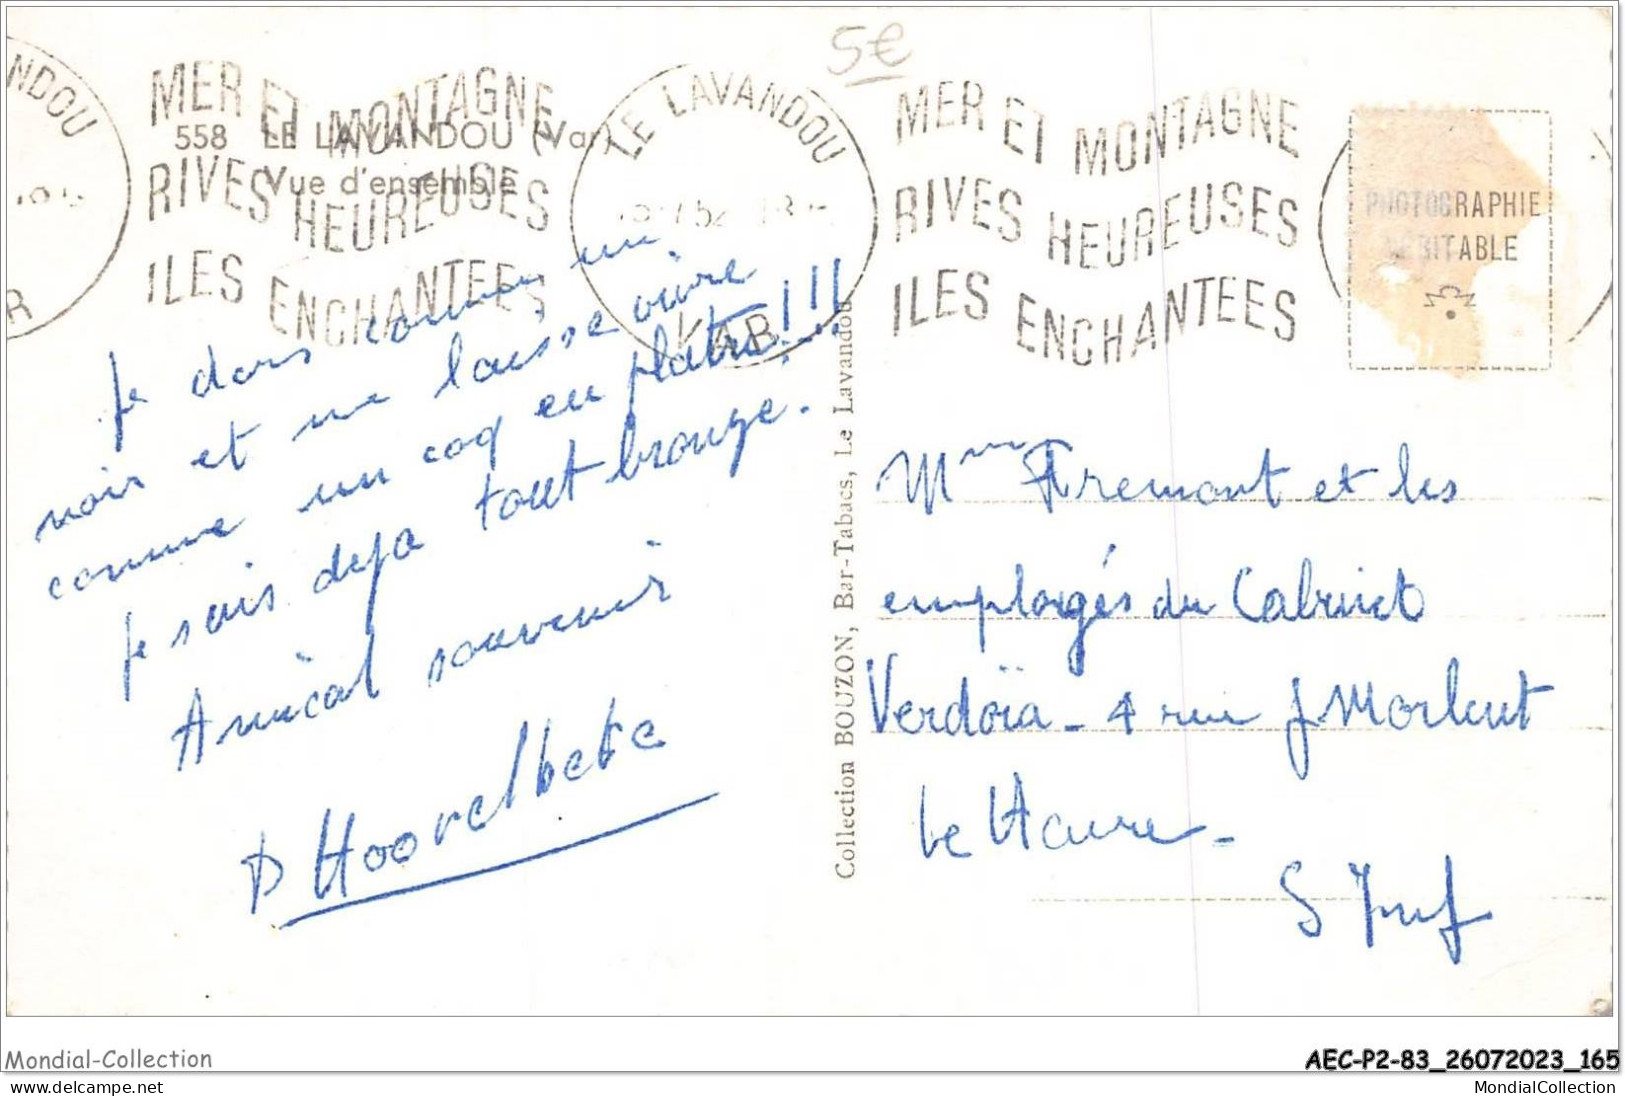 5€
LE LAVANDOU
MER ET MONTAGNE
RIVES HEUREUSES
ILES ENCHANTEES
558 LE LAVANDOU (Var)
Vue d'ensemble
LE LAVANDOU
52
VAR
MER ET MONTAGNE
RIVES HEUREUSES
ILES ENCHANTEES
PHOTOGRAPHIE
VÉRITABLE
Je dors comme un
noir et me laisse vivre
comme un coq en platre!!!
Je suis deja tout bronze.
Amical souvenir
P Hoorelbeke
Collection BOUZON, Bar-Tabacs, Le Lavandou
Mme Fremont et les
employés du Cabinet
Verdoïa - 4 rue J Morlent
Le Havre -
S Inf
Mondial-Collection
delcampe.net
AEC-P2-83_26072023_165
MondialCollection